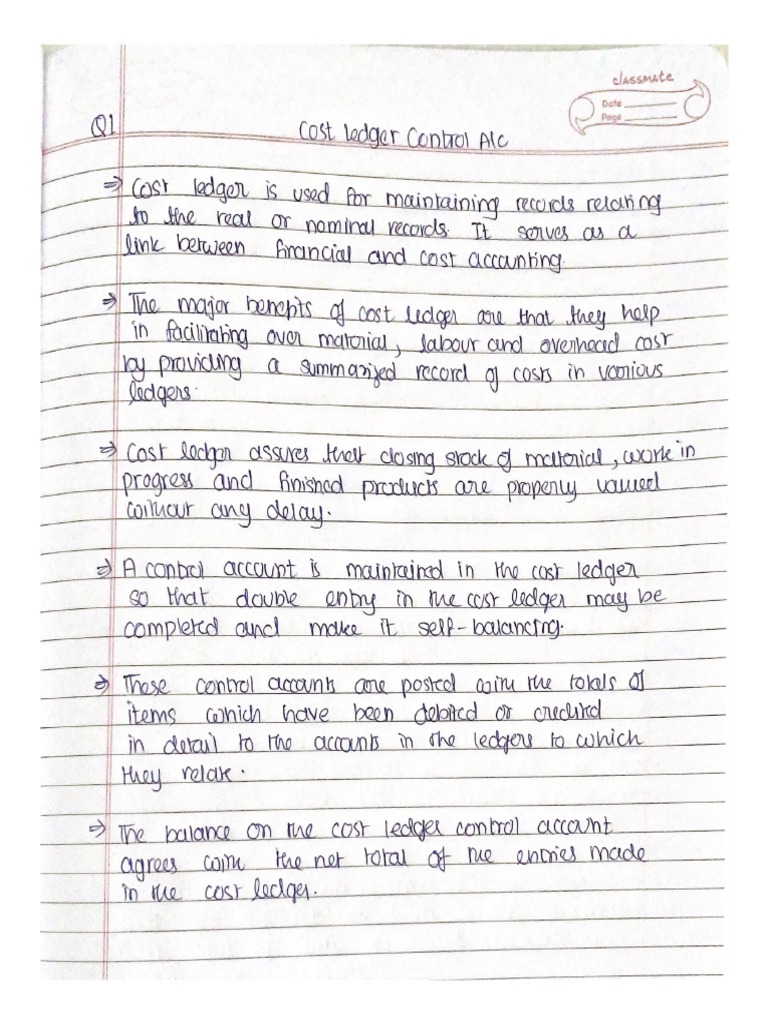 classmate
Date
Page
Q1
Cost ledger Control A/c
⇒ Cost ledger is used for maintaining records relating
to the real or nominal records. It serves as a
link between financial and cost accounting.
⇒ The major benefits of cost ledger are that they help
in facilitating over material, labour and overhead cost
by providing a summarized record of costs in various
ledgers.
⇒ Cost ledger assures that closing stock of material, work in
progress and finished products are properly valued
without any delay.
⇒ A control account is maintained in the cost ledger
so that double entry in the cost ledger may be
completed and make it self-balancing.
⇒ These control accounts are posted with the totals of
items which have been debited or credited
in detail to the accounts in the ledgers to which
they relate.
⇒ The balance on the cost ledger control account
agrees with the net total of the entries made
in the cost ledger.